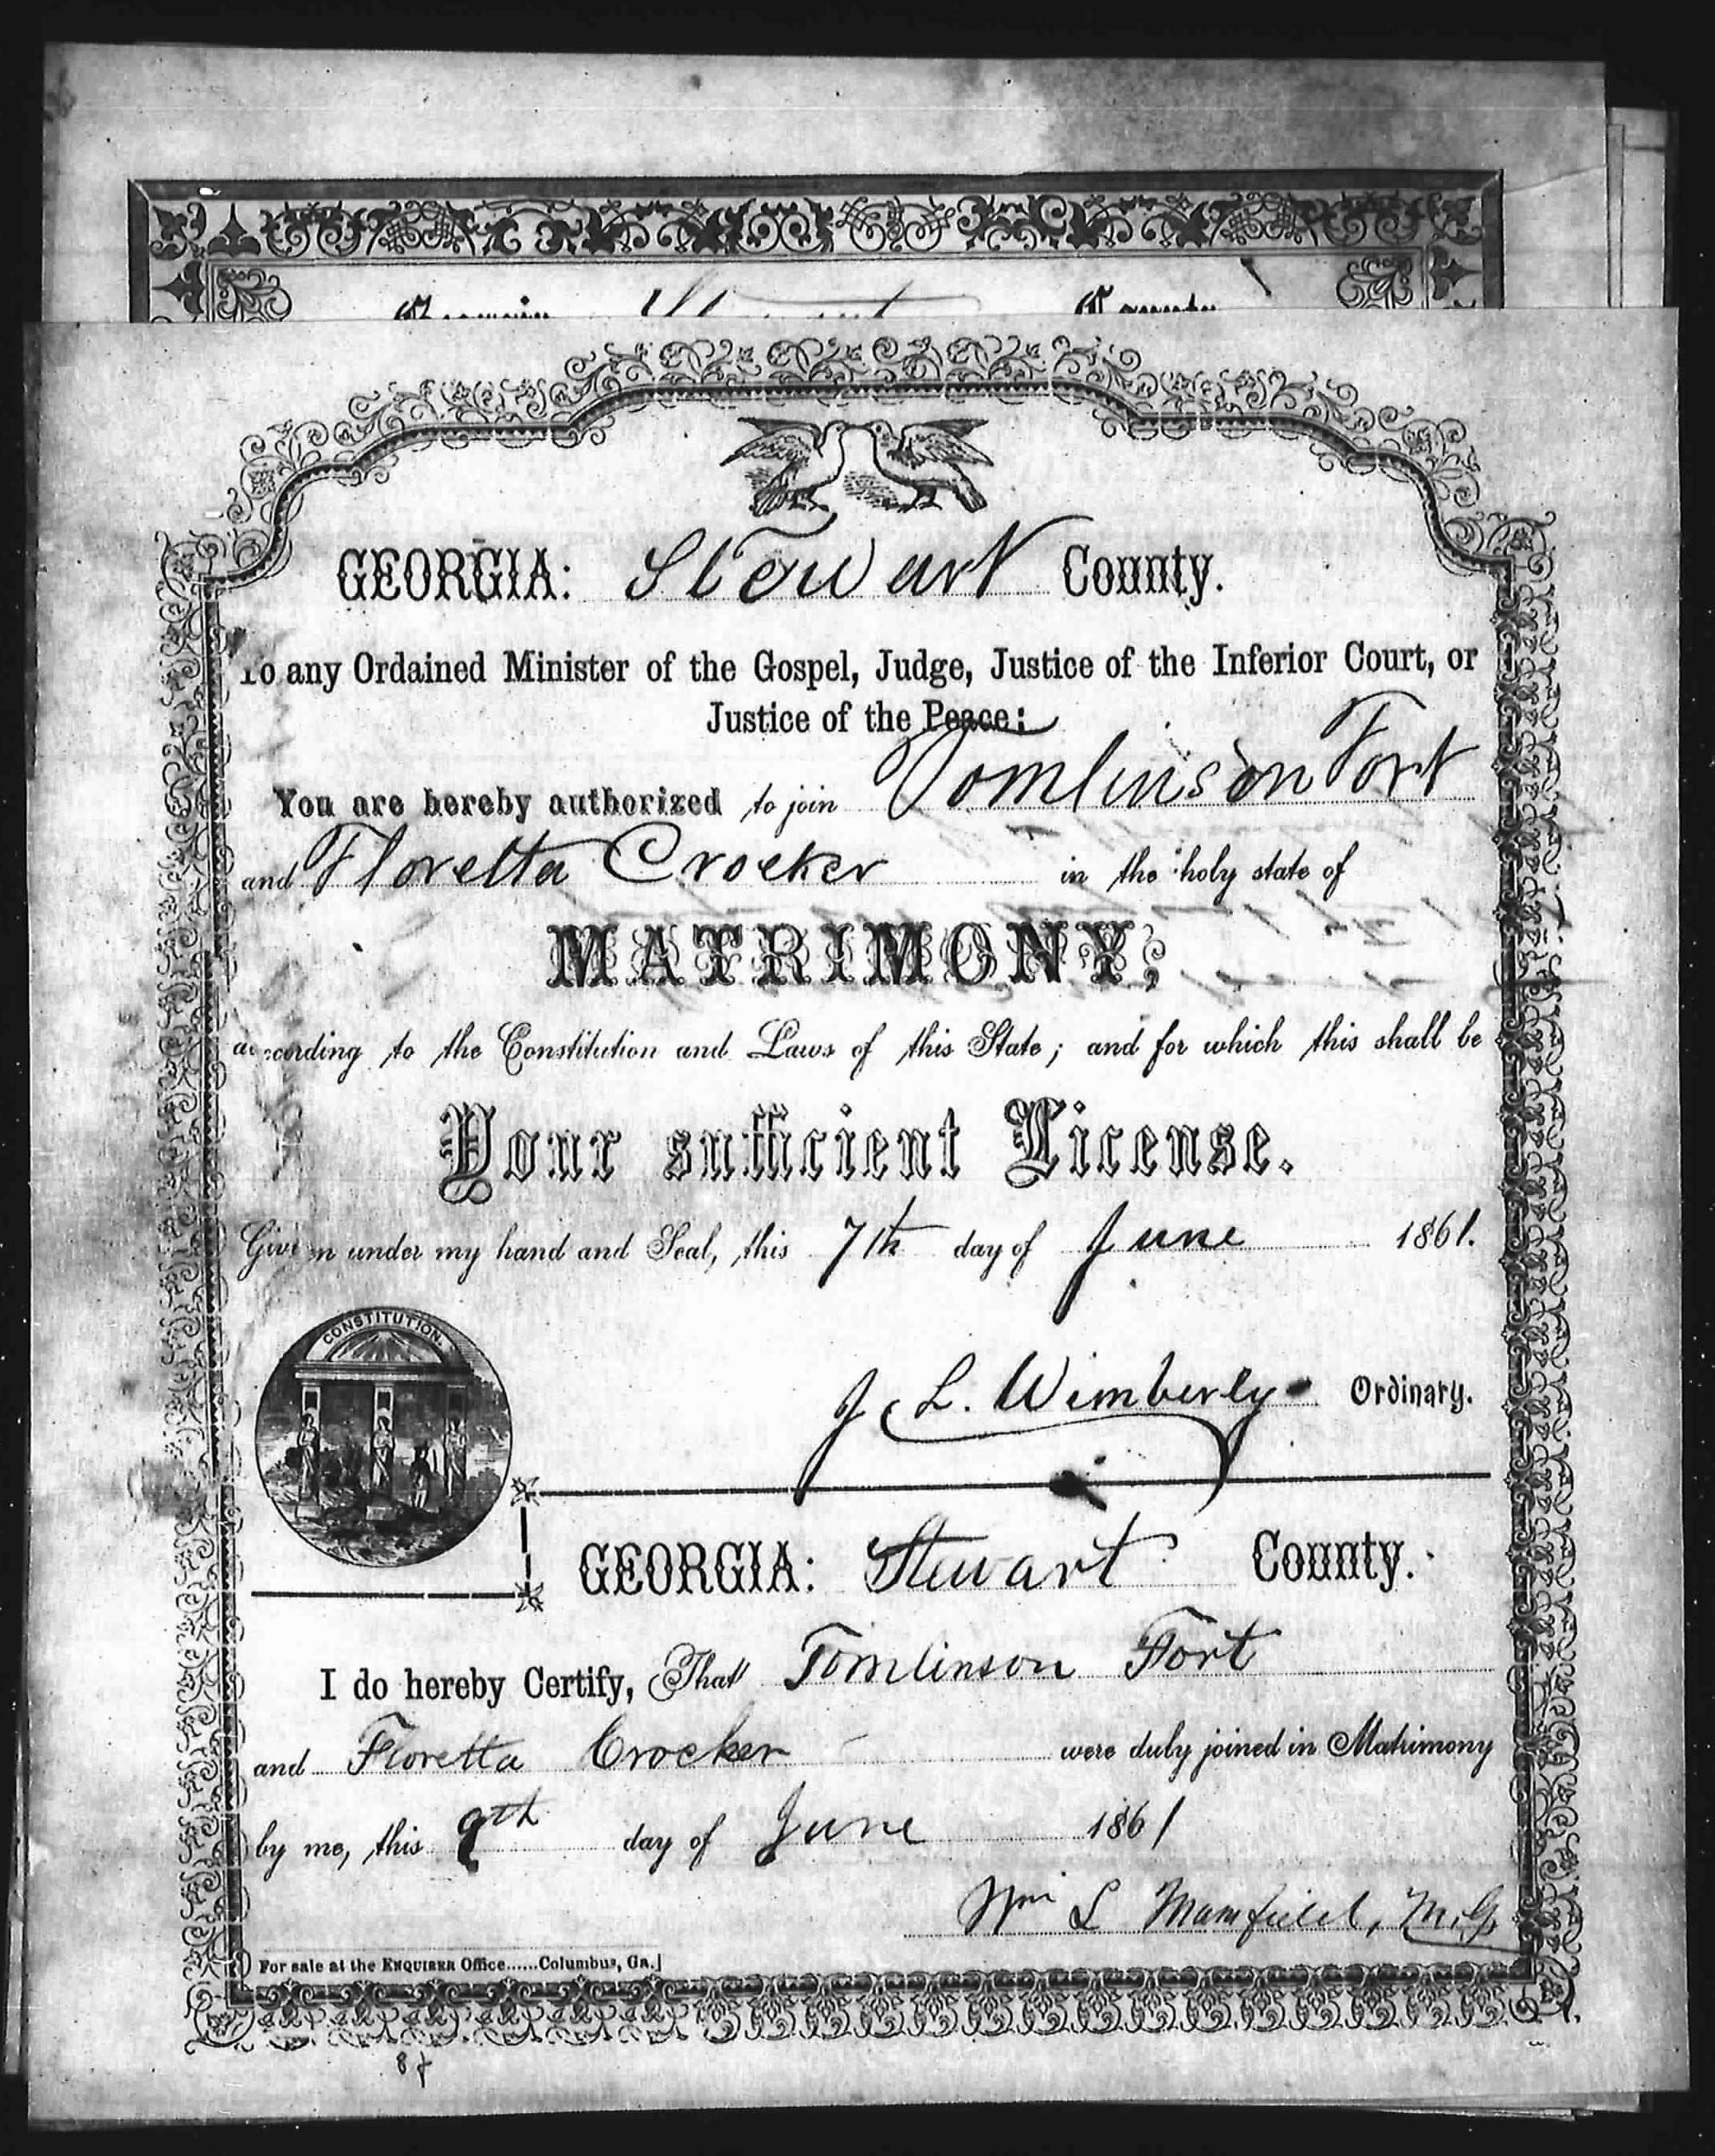 GEORGIA: Stewart County.
To any Ordained Minister of the Gospel, Judge, Justice of the Inferior Court, or
Justice of the Peace:
You are hereby authorized to join Tomlinson Fort
and Floretta Crocker in the holy state of
MATRIMONY,
according to the Constitution and Laws of this State; and for which this shall be
Your sufficient License.
Given under my hand and Seal, this 7th day of June 1861.
CONSTITUTION.
J. L. Wimberly Ordinary.
GEORGIA: Stewart County.
I do hereby Certify, That Tomlinson Fort
and Floretta Crocker were duly joined in Matrimony
by me, this 9th day of June 1861
Wm L Mamfield, M.G.
For sale at the ENQUIRER Office......Columbus, Ga.]